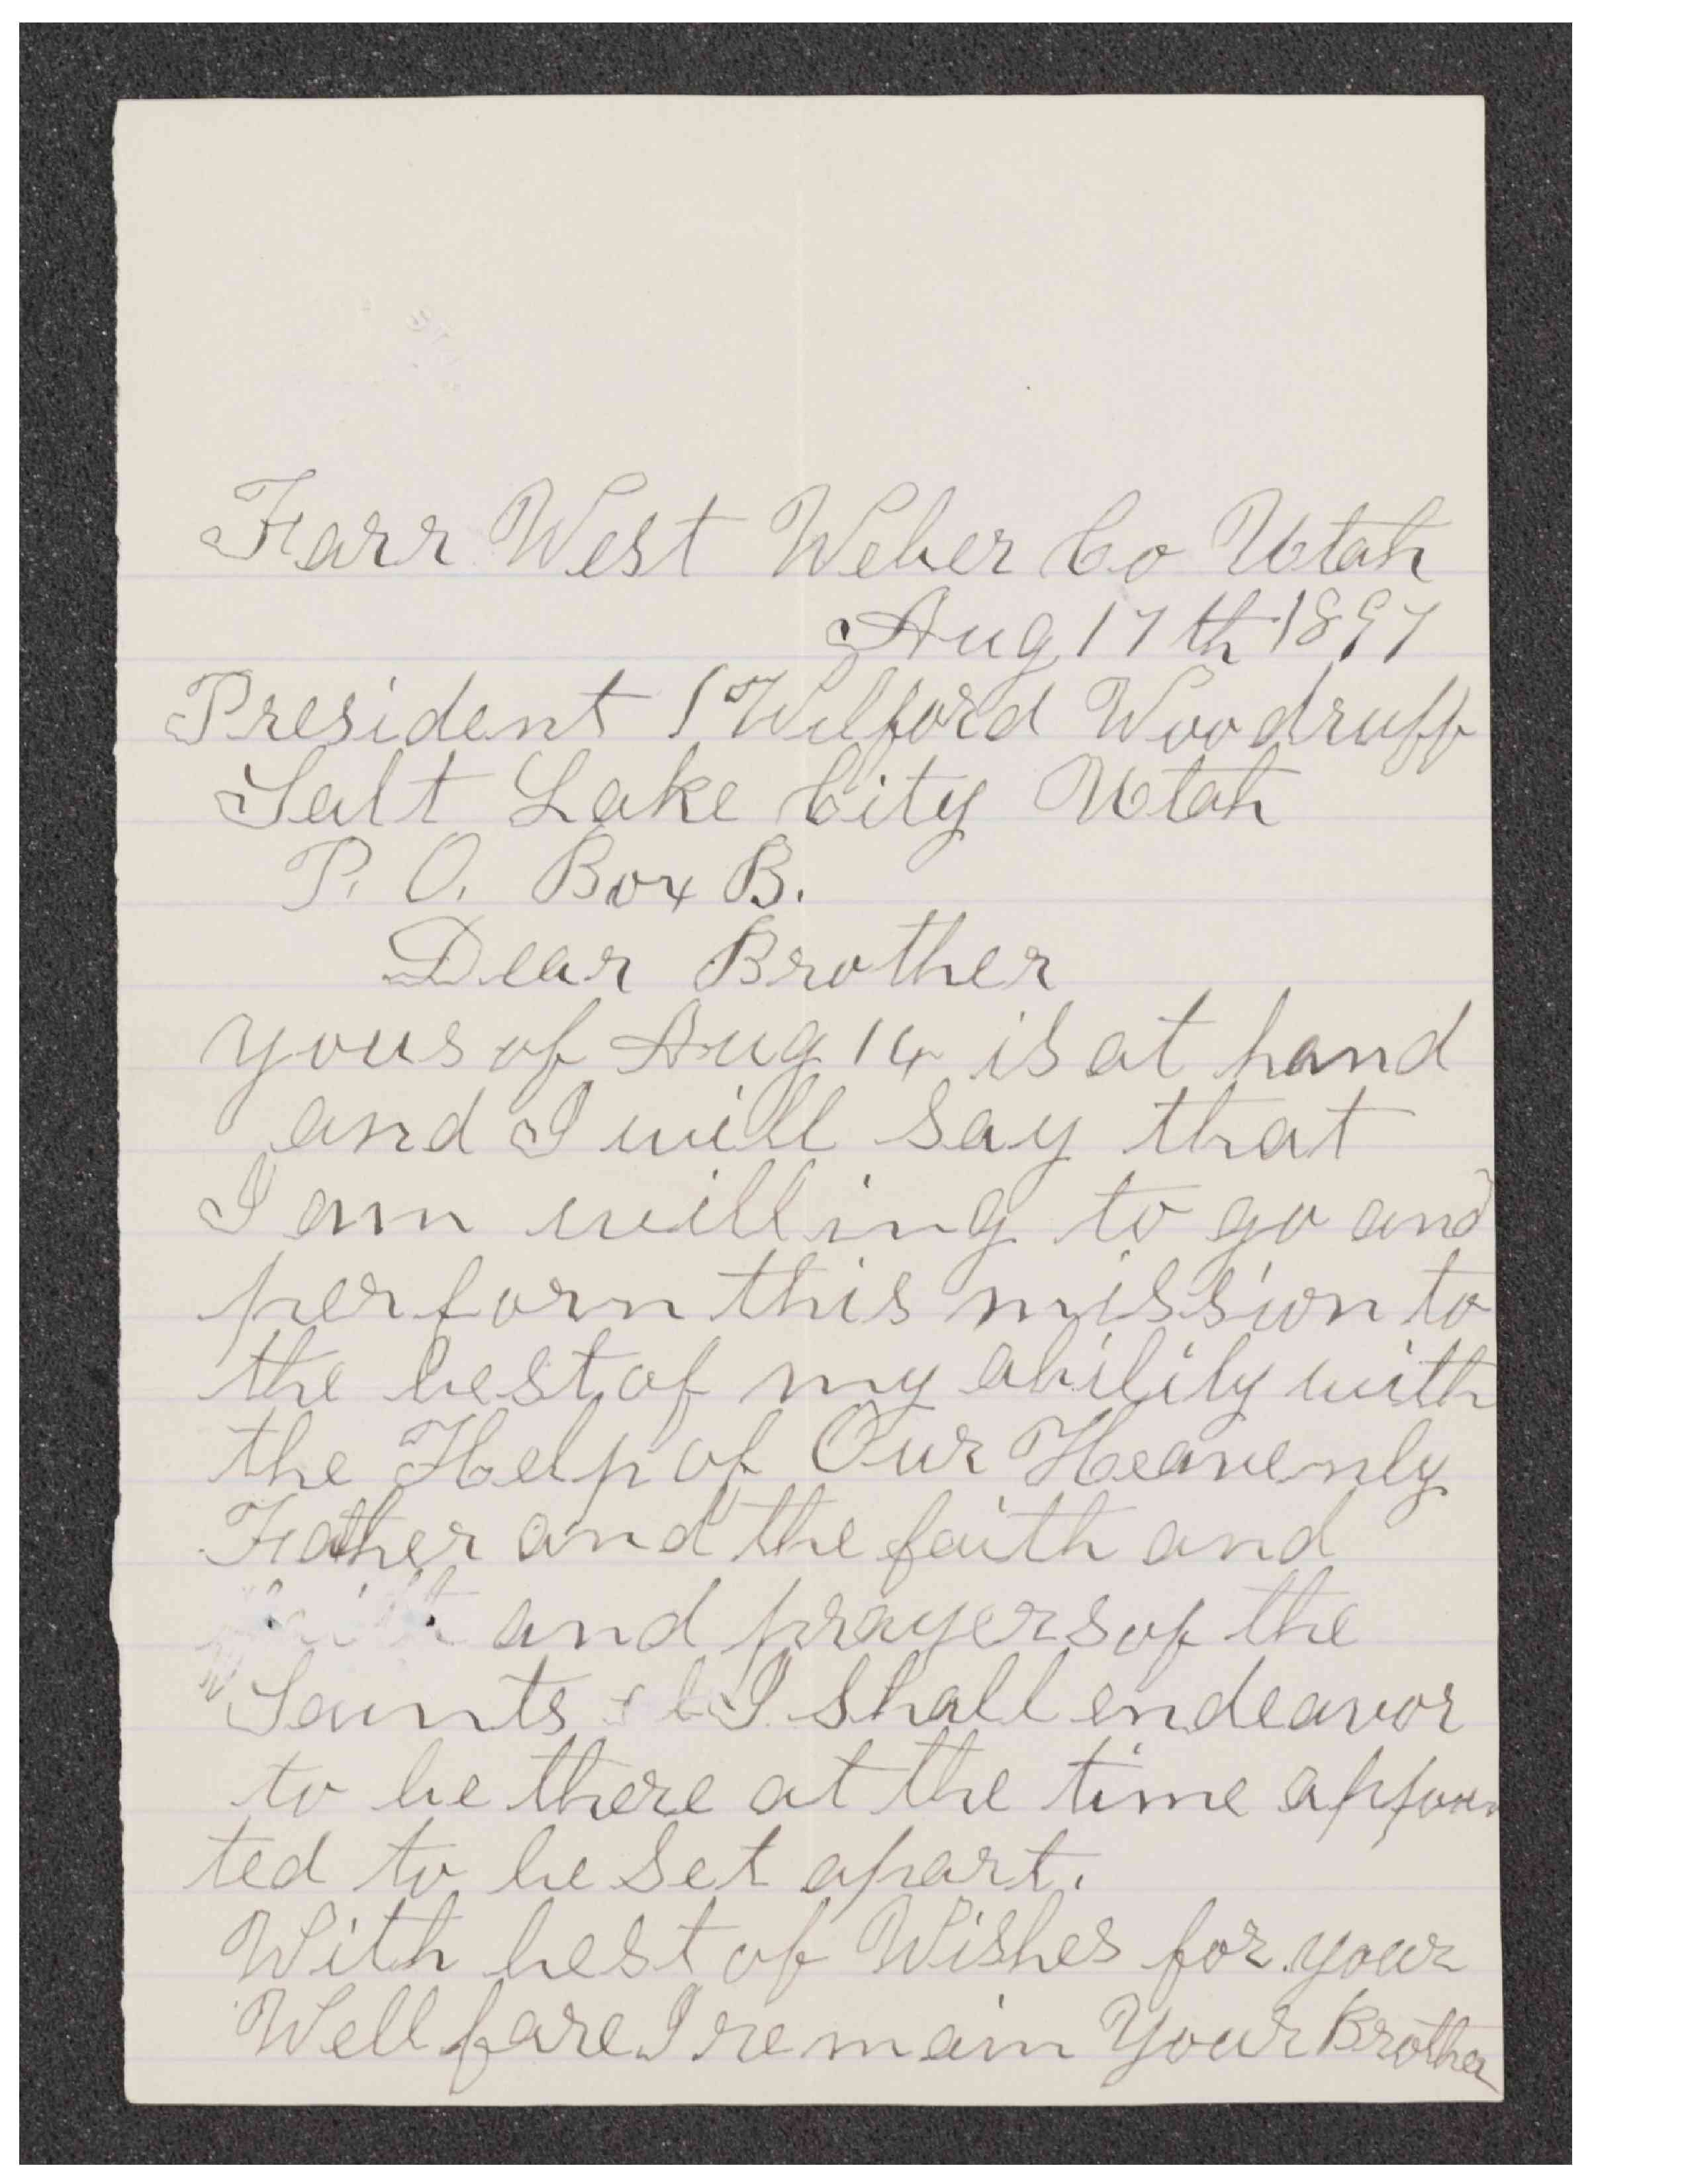 Farr West Weber Co Utah
Aug 17th 1897
President Wilford Woodruff
Salt Lake City Utah
P. O. Box B.
Dear Brother
yous of Aug 14 is at hand
and I will say that
I am willing to go and
perform this mission to
the best of my ability with
the Help of Our Heavenly
Father and the faith and
and prayers of the
Saints I shall endeavor
to be there at the time appoin
ted to be set apart.
With best of Wishes for your
Wellfare I remain Your Brother